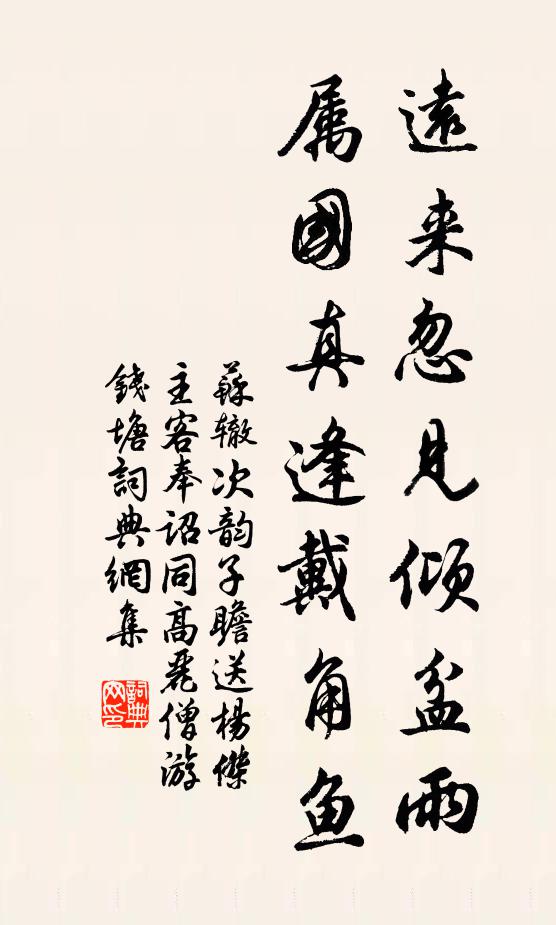 遠来忽見傾盆雨
属國真逢戴角魚
蘇辙次韵子瞻送楊傑
主客奉詔同高麗僧游
錢塘詞典網集
詞典网印